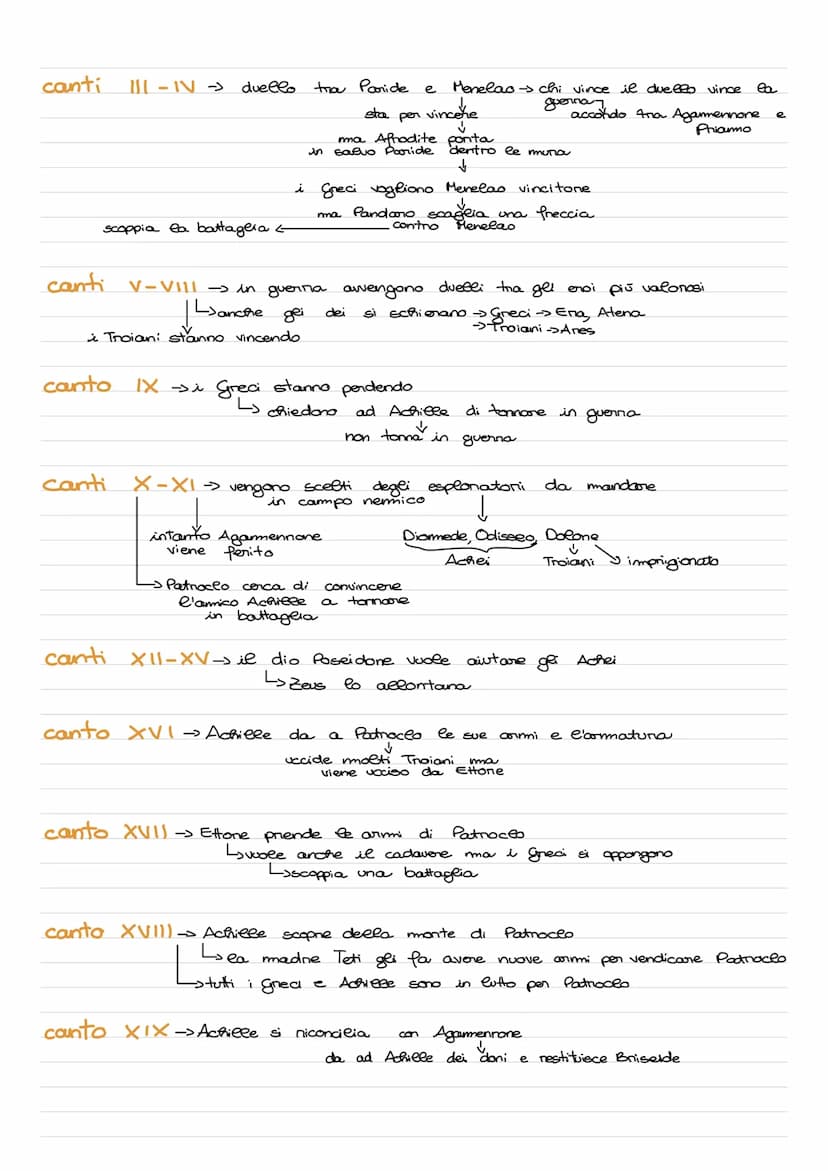 canti III-IV → duello tra Paride e Menelao → chi vince il duello vince la
guerra
sta per vincere accordo tra Agamennone e
Priamo
ma Afrodite porta
in salvo Paride dentro le mura
i Greci vogliono Menelao vincitore
ma Pandaro scaglia una freccia
scoppia la battaglia ← contro Menelao
canti V-VIII → in guerra avvengono duelli tra gli eroi più valorosi
↳ anche gli dei si schierano → Greci → Era, Atena
→ Troiani → Ares
i Troiani stanno vincendo
canto IX → i Greci stanno perdendo
↳ chiedono ad Achille di tornare in guerra
non torna in guerra
canti X-XI → vengono scelti degli esploratori da mandare
in campo nemico
intanto Agamennone Diomede, Odisseo, Dolone
viene ferito Achei Troiani imprigionato
↳ Patroclo cerca di convincere
l'amico Achille a tornare
in battaglia
canti XII-XV → il dio Poseidone vuole aiutare gli Achei
↳ Zeus lo allontana
canto XVI → Achille da a Patroclo le sue armi e l'armatura
uccide molti Troiani ma
viene ucciso da Ettore
canto XVII → Ettore prende le armi di Patroclo
↳ vuole anche il cadavere ma i Greci si oppongono
↳ scoppia una battaglia
canto XVIII → Achille scopre della morte di Patroclo
↳ la madre Teti gli fa avere nuove armi per vendicare Patroclo
↳ tutti i Greci e Achille sono in lutto per Patroclo
canto XIX → Achille si riconcilia con Agamennone
da ad Achille dei doni e restituiece Briseide